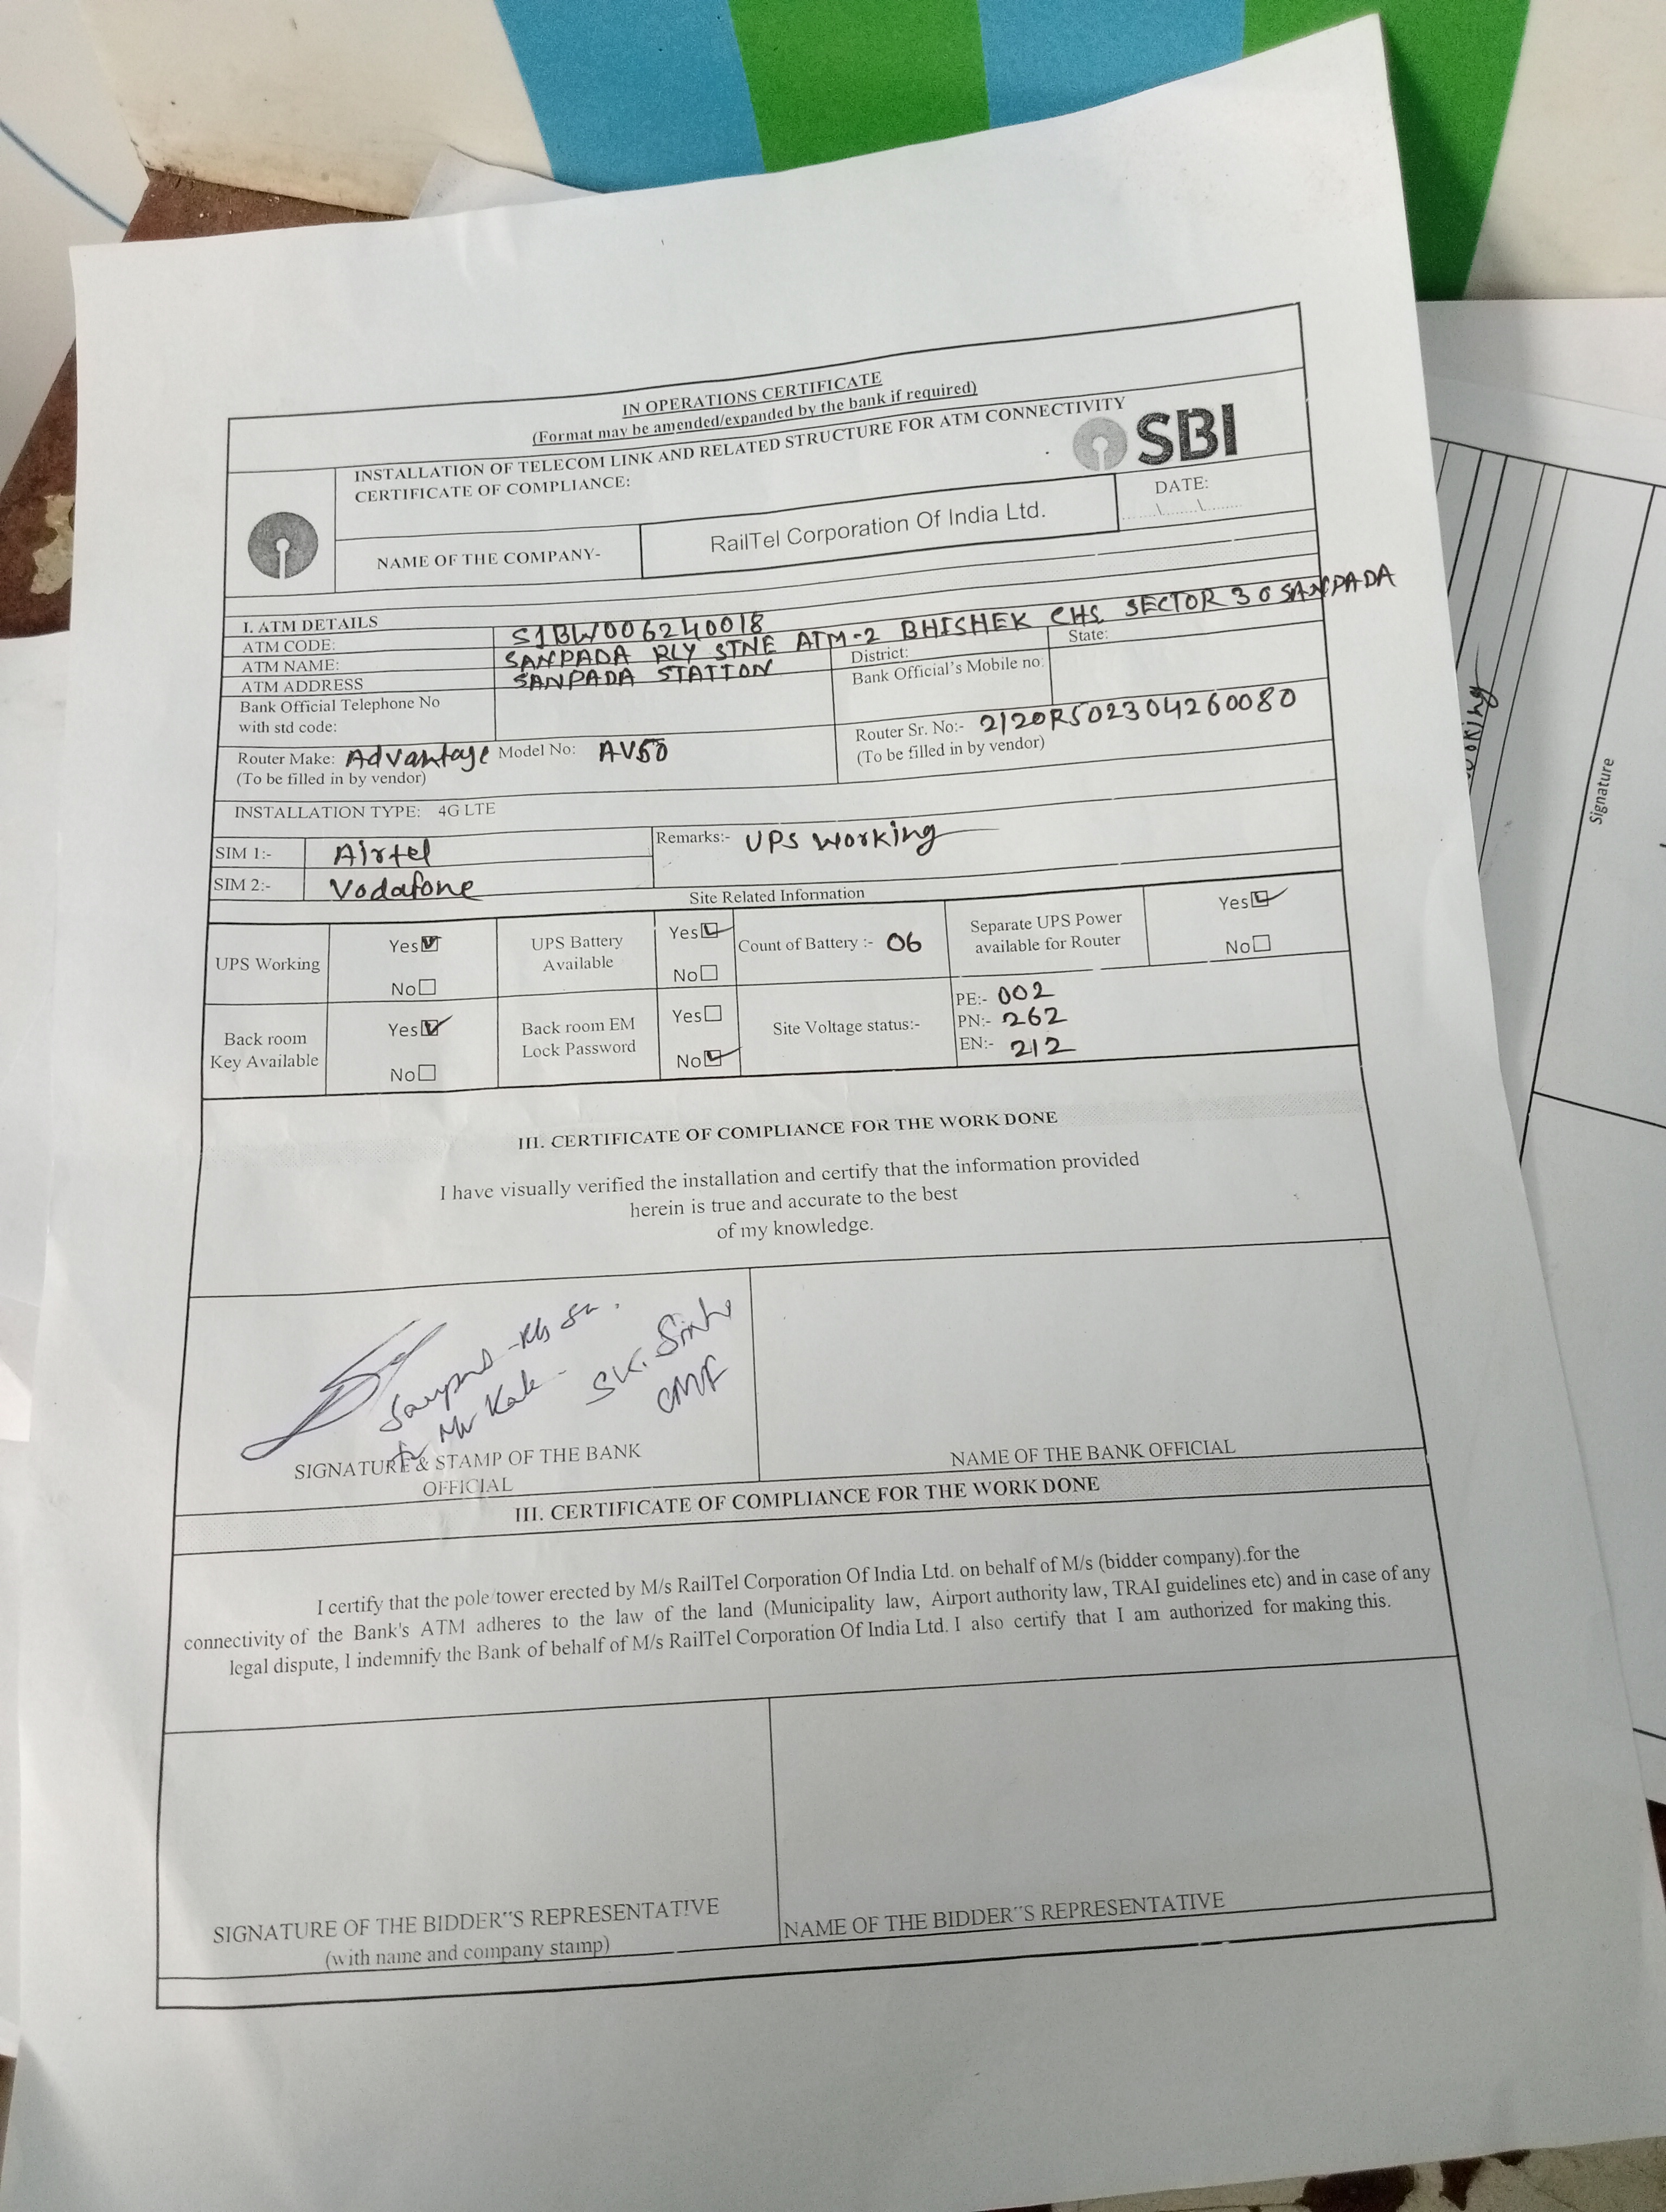 IN OPERATIONS CERTIFICATE
(Format may be amended/expanded by the bank if required)
INSTALLATION OF TELECOM LINK AND RELATED STRUCTURE FOR ATM CONNECTIVITY
CERTIFICATE OF COMPLIANCE:
SBI
NAME OF THE COMPANY-
RailTel Corporation Of India Ltd.
DATE:
......\......\........
I. ATM DETAILS
ATM CODE: S1BW006240018
ATM NAME: SANPADA RLY STNE ATM-2 BHISHEK CHS SECTOR 30 SANPADA
ATM ADDRESS SANPADA STATION
District:
State:
Bank Official Telephone No
with std code:
Bank Official's Mobile no:
Router Make: Advantage Model No: AV50
(To be filled in by vendor)
Router Sr. No:- 2120R502304260080
(To be filled in by vendor)
INSTALLATION TYPE: 4G LTE
SIM 1:- Airtel
SIM 2:- Vodafone
Remarks:- UPS Working
Site Related Information
UPS Working
Yes
No
UPS Battery
Available
Yes
No
Count of Battery :- 06
Separate UPS Power
available for Router
Yes
No
Back room
Key Available
Yes
No
Back room EM
Lock Password
Yes
No
Site Voltage status:-
PE:- 002
PN:- 262
EN:- 212
III. CERTIFICATE OF COMPLIANCE FOR THE WORK DONE
I have visually verified the installation and certify that the information provided
herein is true and accurate to the best
of my knowledge.
Mr
CMF
SIGNATURE & STAMP OF THE BANK
OFFICIAL
NAME OF THE BANK OFFICIAL
III. CERTIFICATE OF COMPLIANCE FOR THE WORK DONE
I certify that the pole/tower erected by M/s RailTel Corporation Of India Ltd. on behalf of M/s (bidder company).for the
connectivity of the Bank's ATM adheres to the law of the land (Municipality law, Airport authority law, TRAI guidelines etc) and in case of any
legal dispute, I indemnify the Bank of behalf of M/s RailTel Corporation Of India Ltd. I also certify that I am authorized for making this.
SIGNATURE OF THE BIDDER"S REPRESENTATIVE
(with name and company stamp)
NAME OF THE BIDDER"S REPRESENTATIVE
Signature